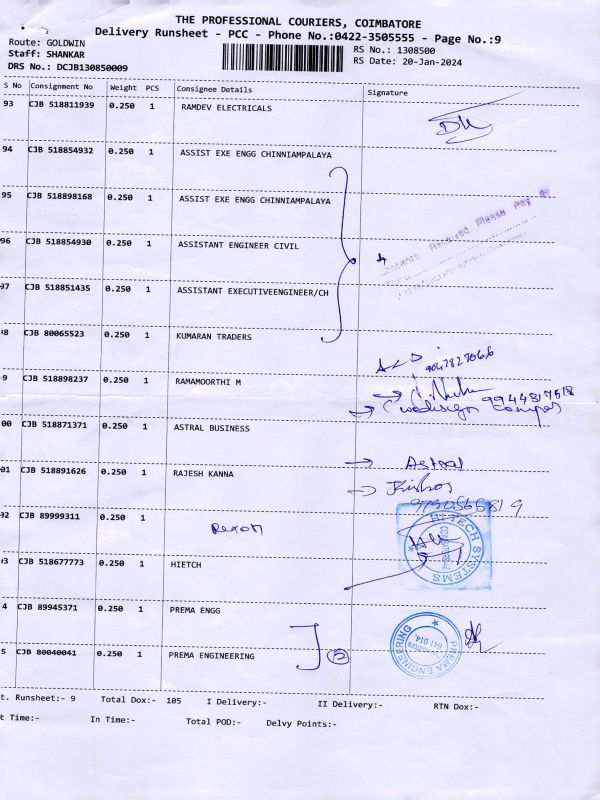 THE PROFESSIONAL COURIERS, COIMBATORE
Delivery Runsheet - PCC - Phone No.:0422-3505555 - Page No.:9
Route: GOLDWIN
RS No.: 1308500
Staff: SHANKAR
RS Date: 20-Jan-2024
DRS No.: DCJB130850009
S No Consignment No Weight PCS Consignee Details Signature
93 CJB 518811939 0.250 1 RAMDEV ELECTRICALS
94 CJB 518854932 0.250 1 ASSIST EXE ENGG CHINNIAMPALAYA
95 CJB 518898168 0.250 1 ASSIST EXE ENGG CHINNIAMPALAYA
96 CJB 518854930 0.250 1 ASSISTANT ENGINEER CIVIL 4
Received Please Pay @
97 CJB 518851435 0.250 1 ASSISTANT EXECUTIVEENGINEER/CH
98 CJB 80065523 0.250 1 KUMARAN TRADERS
9 CJB 518898237 0.250 1 RAMAMOORTHI M
9944817518
00 CJB 518871371 0.250 1 ASTRAL BUSINESS
Astral
01 CJB 518891626 0.250 1 RAJESH KANNA
02 CJB 89999311 0.250 1
HI-TECH SYSTEMS
03 CJB 518677773 0.250 1 HIETCH
4 CJB 89945371 0.250 1 PREMA ENGG
5 CJB 80040041 0.250 1 PREMA ENGINEERING 2
PREMA ENGINEERING
641 014.
t. Runsheet:- 9 Total Dox:- 105 I Delivery:- II Delivery:- RTN Dox:-
t Time:- In Time:- Total POD:- Delvy Points:-